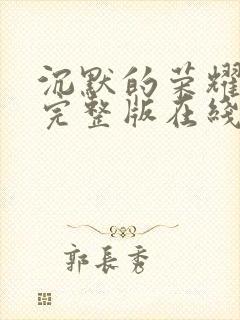 沉默的荣耀
完整版在线
郭长秀